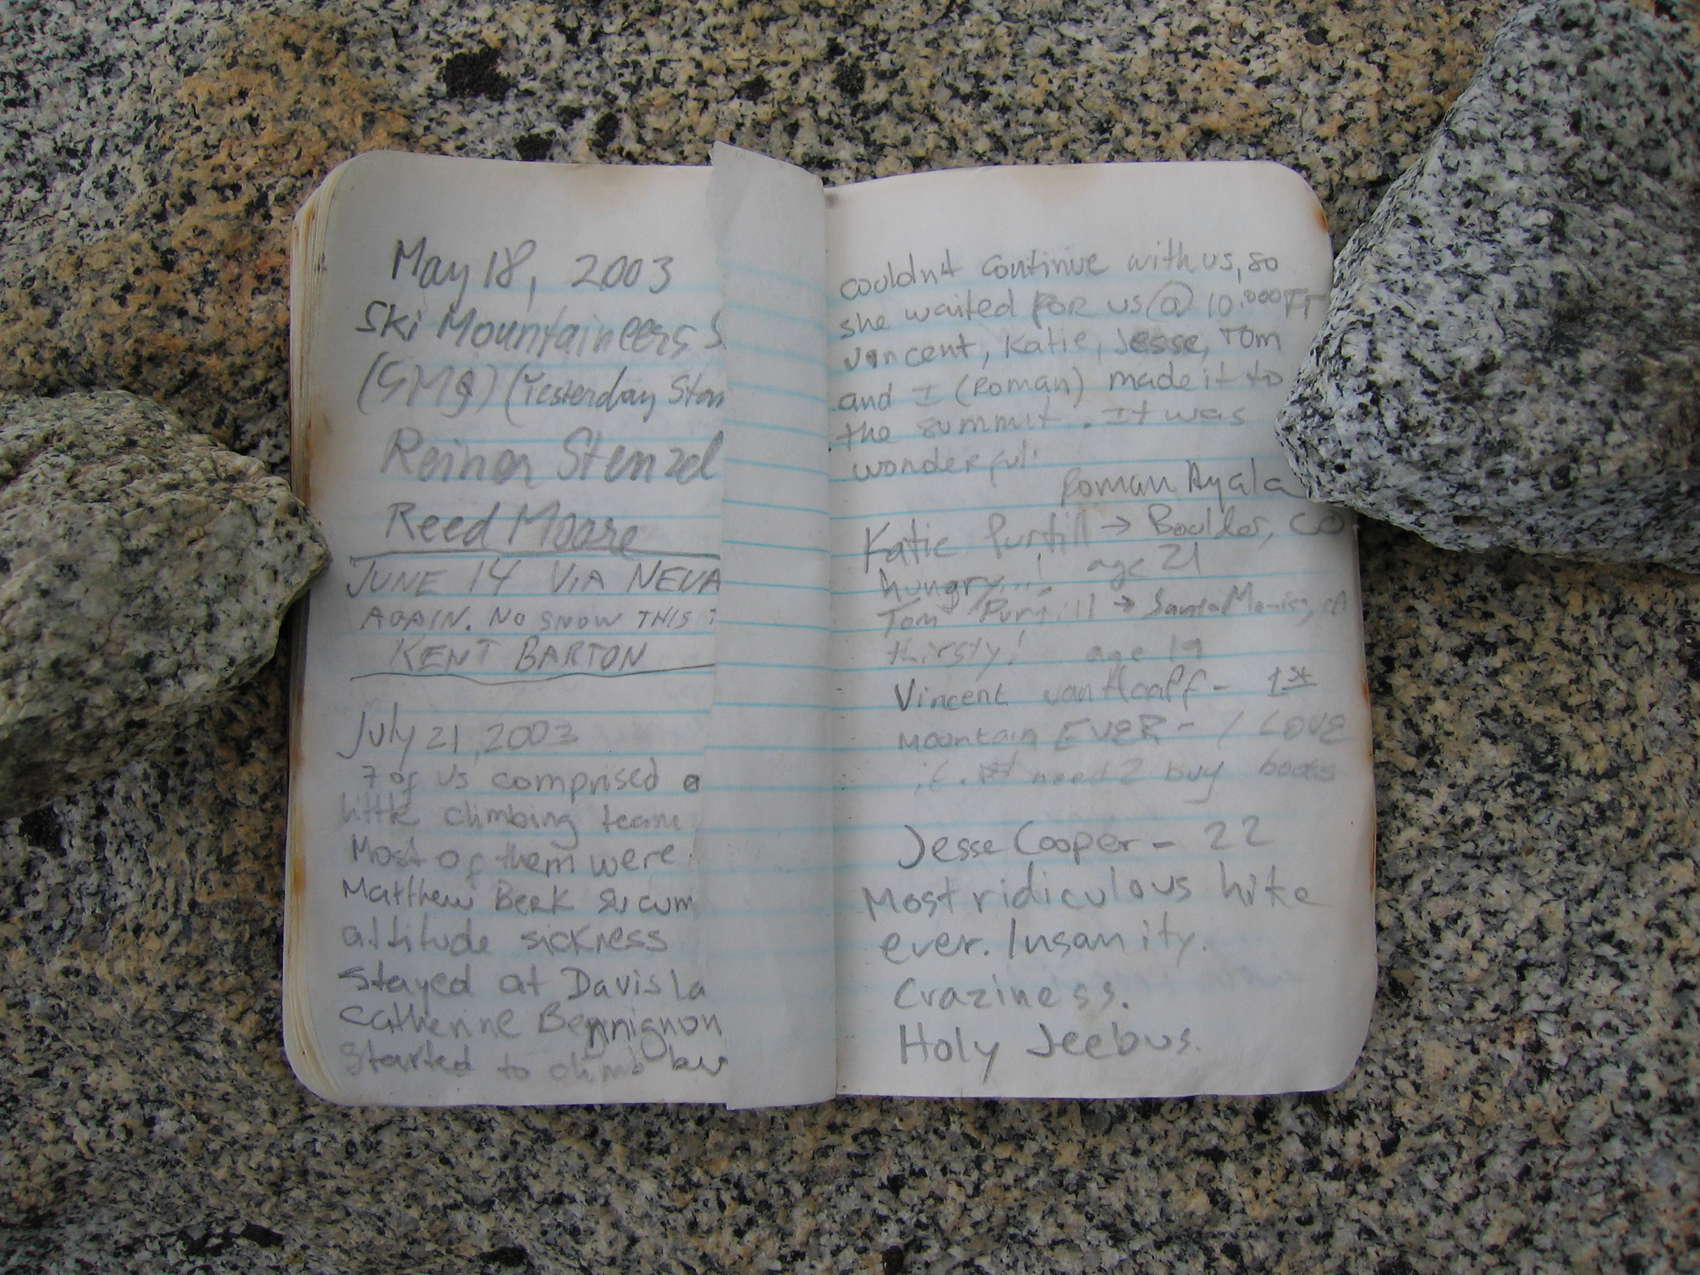 May 18, 2003
Ski Mountaineers S
(SMS) (Yesterday Ston
Reiner Stenzel
Reed Moore
JUNE 14 VIA NEVA
AGAIN. NO SNOW THIS T
KENT BARTON
July 21, 2003
7 of us comprised a
little climbing team
Most of them were
Matthew Beek sucum
altitude sickness
stayed at Davis la
Catherine Bennignon
started to climb bu
couldn't continue with us, so
she waited FOR us @ 10,000 FT
Vincent, Katie, Jesse, Tom
and I (Roman) made it to
the summit. It was
wonderful!
Roman Ayala
Katie Purtill → Boulder, CO
hungry...! age 21
Tom Purtill → Santa Monica, CA
thirsty! age 19
Vincent van - 1st
mountain EVER - I LOVE
it. need 2 buy boots
Jesse Cooper - 22
Most ridiculous hike
ever. Insanity.
Craziness.
Holy Jeebus.